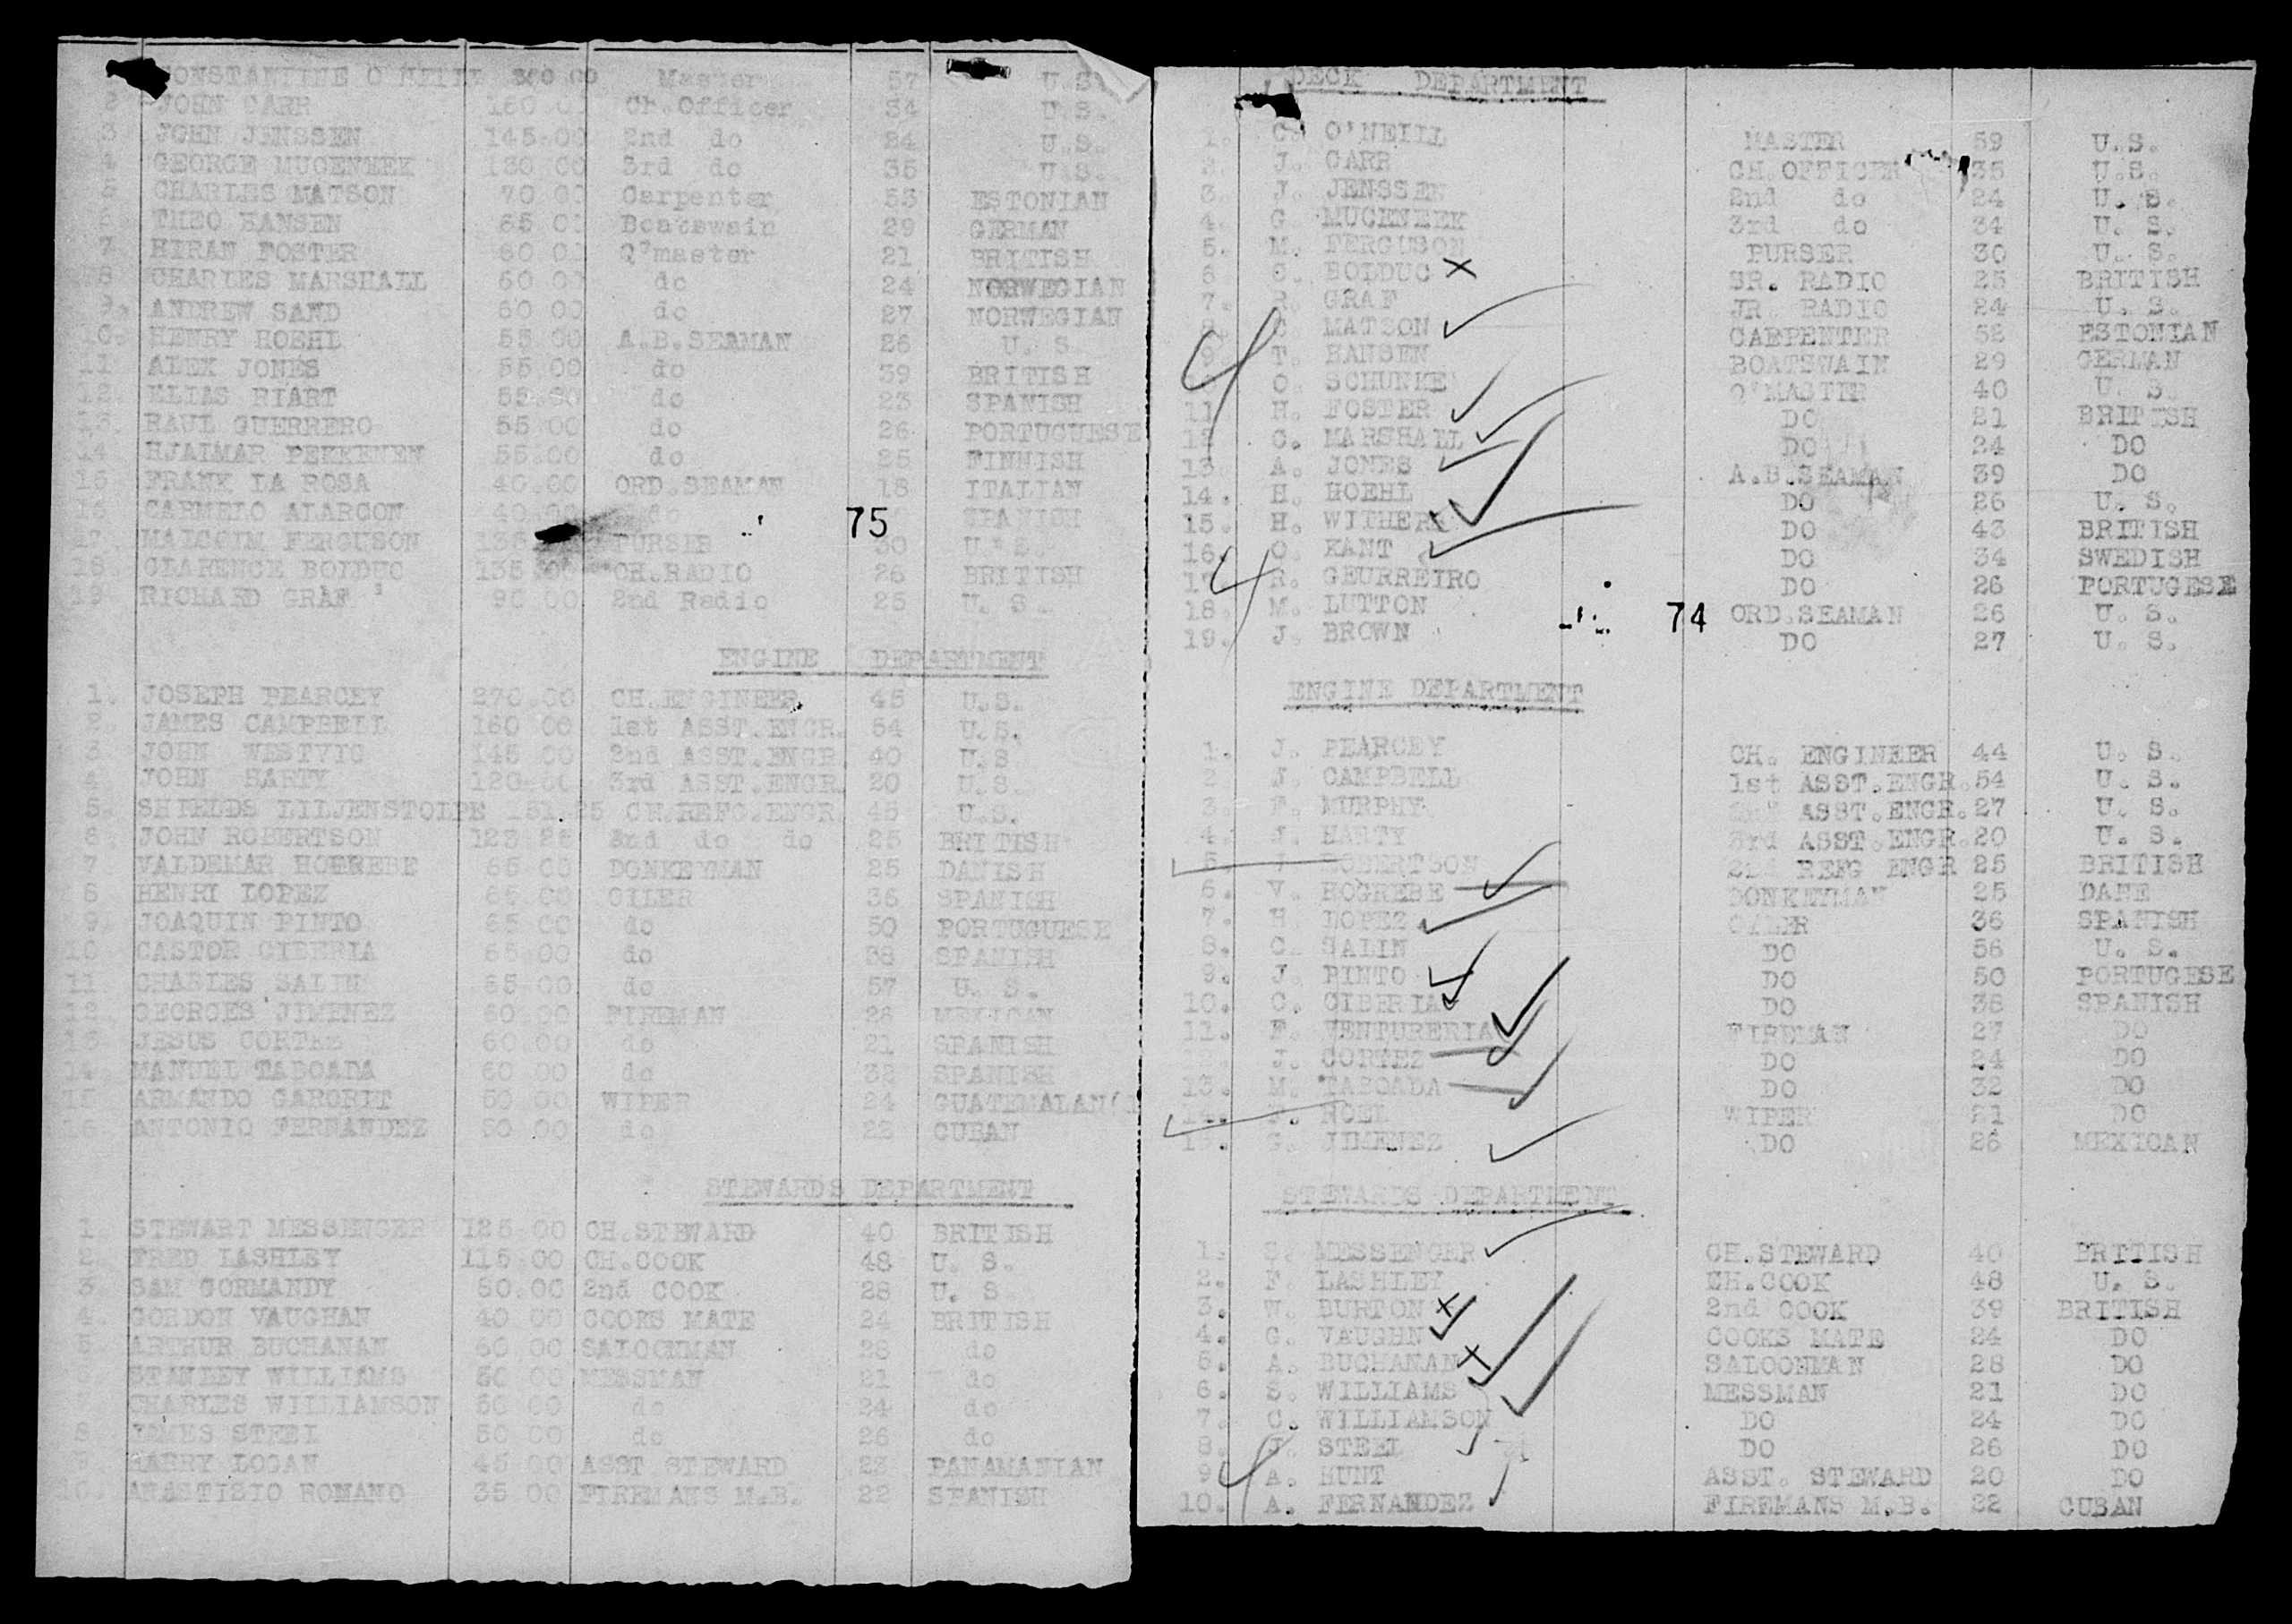 CONSTANTINE O'NEILL 300.00 Master 57 U.S.
2 JOHN CARR 160 00 Ch.Officer 34 U.S.
3 JOHN JENSSEN 145.00 2nd do 24 U.S.
4 GEORGE MUCENEEK 130 00 3rd do 35 U.S.
5 CHARLES MATSON 70 00 Carpenter 53 ESTONIAN
6 THEO HANSEN 65 00 Boatswain 29 GERMAN
7. HIRAN FOSTER 60 00 Q'master 21 BRITISH
8 CHARLES MARSHALL 60 00 do 24 NORWEGIAN
9. ANDREW SAND 60 00 do 27 NORWEGIAN
10. HENRY HOEHL 55 00 A.B.SEAMAN 26 U. S.
11 ALEX JONES 55.00 do 39 BRITISH
12. ELIAS RIART 55.00 do 23 SPANISH
13. RAUL GUERRERO 55 00 do 26 PORTUGUESE
14. HJAIMAR PEKKENEN 55.00 do 25 FINNISH
15 FRANK LA ROSA 40.00 ORD.SEAMAN 18 ITALIAN
16 CARMELO ALARCON 40.00 do SPANISH
75
17. MALCOLM FERGUSON 135 PURSER 30 U. S.
18. CLARENCE BOLDUC 135 00 CH.RADIO 26 BRITISH
19 RICHARD GRAF 90 00 2nd Radio 25 U. S.
ENGINE DEPARTMENT
1. JOSEPH PEARCEY 270.00 CH.ENGINEER 45 U.S.
2. JAMES CAMPBELL 160 00 1st ASST.ENGR. 54 U.S.
3 JOHN WESTVIG 145 00 2nd ASST.ENGR. 40 U.S
4 JOHN HARTY 120.00 3rd ASST.ENGR. 20 U.S.
5. SHIELDS LILJENSTOLPE 151.25 CH.REFG.ENGR 45 U.S.
6. JOHN ROBERTSON 123 25 2nd do do 25 BRITISH
7 VALDEMAR HOEREBE 65 00 DONKEYMAN 25 DANISH
8 HENRI LOPEZ 65.00 OILER 36 SPANISH
9 JOAQUIN PINTO 65 00 do 50 PORTUGUESE
10 CASTOR CIBERIA 65.00 do 38 SPANISH
11. CHARLES SALIN 65.00 do 57 U. S.
12. GEORGES JIMENEZ 60.00 FIREMAN 26 MEXICAN
13 JESUS CORTEZ 60.00 do 21 SPANISH
14. MANUEL TABOADA 60 00 do 32 SPANISH
15 ARMANDO GARORIT 50 00 WIPER 24 GUATEMALAN
16. ANTONIO FERNANDEZ 50 00 do 22 CUBAN
STEWARDS DEPARTMENT
1. STEWART MESSENGER 125.00 CH.STEWARD 40 BRITISH
2. FRED LASHLEY 115.00 CH.COOK 48 U. S.
3. SAM GORMANDY 80.00 2nd COOK 28 U. S
4. GORDON VAUGHAN 40 00 COOKS MATE 24 BRITISH
5 ARTHUR BUCHANAN 60 00 SALOONMAN 28 do
STANLEY WILLIAMS 50 00 MESSMAN 21 do
CHARLES WILLIAMSON 50 00 do 24 do
8. JAMES STEEL 50 00 do 26 do
9. HARRY LOGAN 45 00 ASST STEWARD 23 PANAMANIAN
10. ANASTISIO ROMANO 35 00 FIREMANS M.B. 22 SPANISH
DECK DEPARTMENT
1. C. O'NEILL MASTER 59 U.S.
2. J. CARR CH.OFFICER 35 U.S.
3. J. JENSSEN 2nd do 24 U. S.
4. G. MUCENEEK 3rd do 34 U. S.
5. M. FERGUSON PURSER 30 U. S.
6 C. BOLDUC SR. RADIO 25 BRITISH
7. R. GRAF JR RADIO 24 U. S.
8. C MATSON CARPENTER 52 ESTONIAN
9. T. HANSEN BOATSWAIN 29 GERMAN
O. SCHUNKE Q'MASTER 40 U. S.
11 H. FOSTER DO 21 BRITISH
12 C. MARSHALL DO 24 DO
13. A. JONES A.B.SEAMAN 39 DO
14. H. HOEHL DO 26 U. S.
15. H. WITHERS DO 43 BRITISH
16. O. KANT DO 34 SWEDISH
17 R. GEURREIRO DO 26 PORTUGESE
18. M. LUTTON ORD.SEAMAN 26 U. S.
74
19. J. BROWN DO 27 U. S.
ENGINE DEPARTMENT
1. J. PEARCEY CH. ENGINEER 44 U. S.
2 J. CAMPBELL 1st ASST.ENGR. 54 U. S.
3. F. MURPHY 2nd ASST.ENGR. 27 U. S.
4. J. HARTY 3rd ASST.ENGR. 20 U. S.
5. J ROBERTSON 2nd REFG ENGR 25 BRITISH
6. V. HOGREBE DONKEYMAN 25 DANE
7. H. LOPEZ OILER 36 SPANISH
8. C. SALIN DO 56 U. S.
9. J. PINTO DO 50 PORTUGESE
10. C. CIBERIA DO 38 SPANISH
11. F. VENTURERIA FIREMAN 27 DO
12. J. CORTEZ DO 24 DO
13. M. TABOADA DO 32 DO
14. NOEL WIPER 21 DO
15. G. JIMENEZ DO 26 MEXICAN
STEWARDS DEPARTMENT
1. S. MESSENGER CH.STEWARD 40 BRITISH
2. F. LASHLEY CH.COOK 48 U. S.
3. W. BURTON 2nd COOK 39 BRITISH
4. G. VAUGHN COOKS MATE 24 DO
5. A. BUCHANAN SALOONMAN 28 DO
6. S. WILLIAMS MESSMAN 21 DO
7. C. WILLIAMSON DO 24 DO
8. J. STEEL DO 26 DO
9 A. HUNT ASST. STEWARD 20 DO
10. A. FERNANDEZ FIREMANS M.B. 22 CUBAN